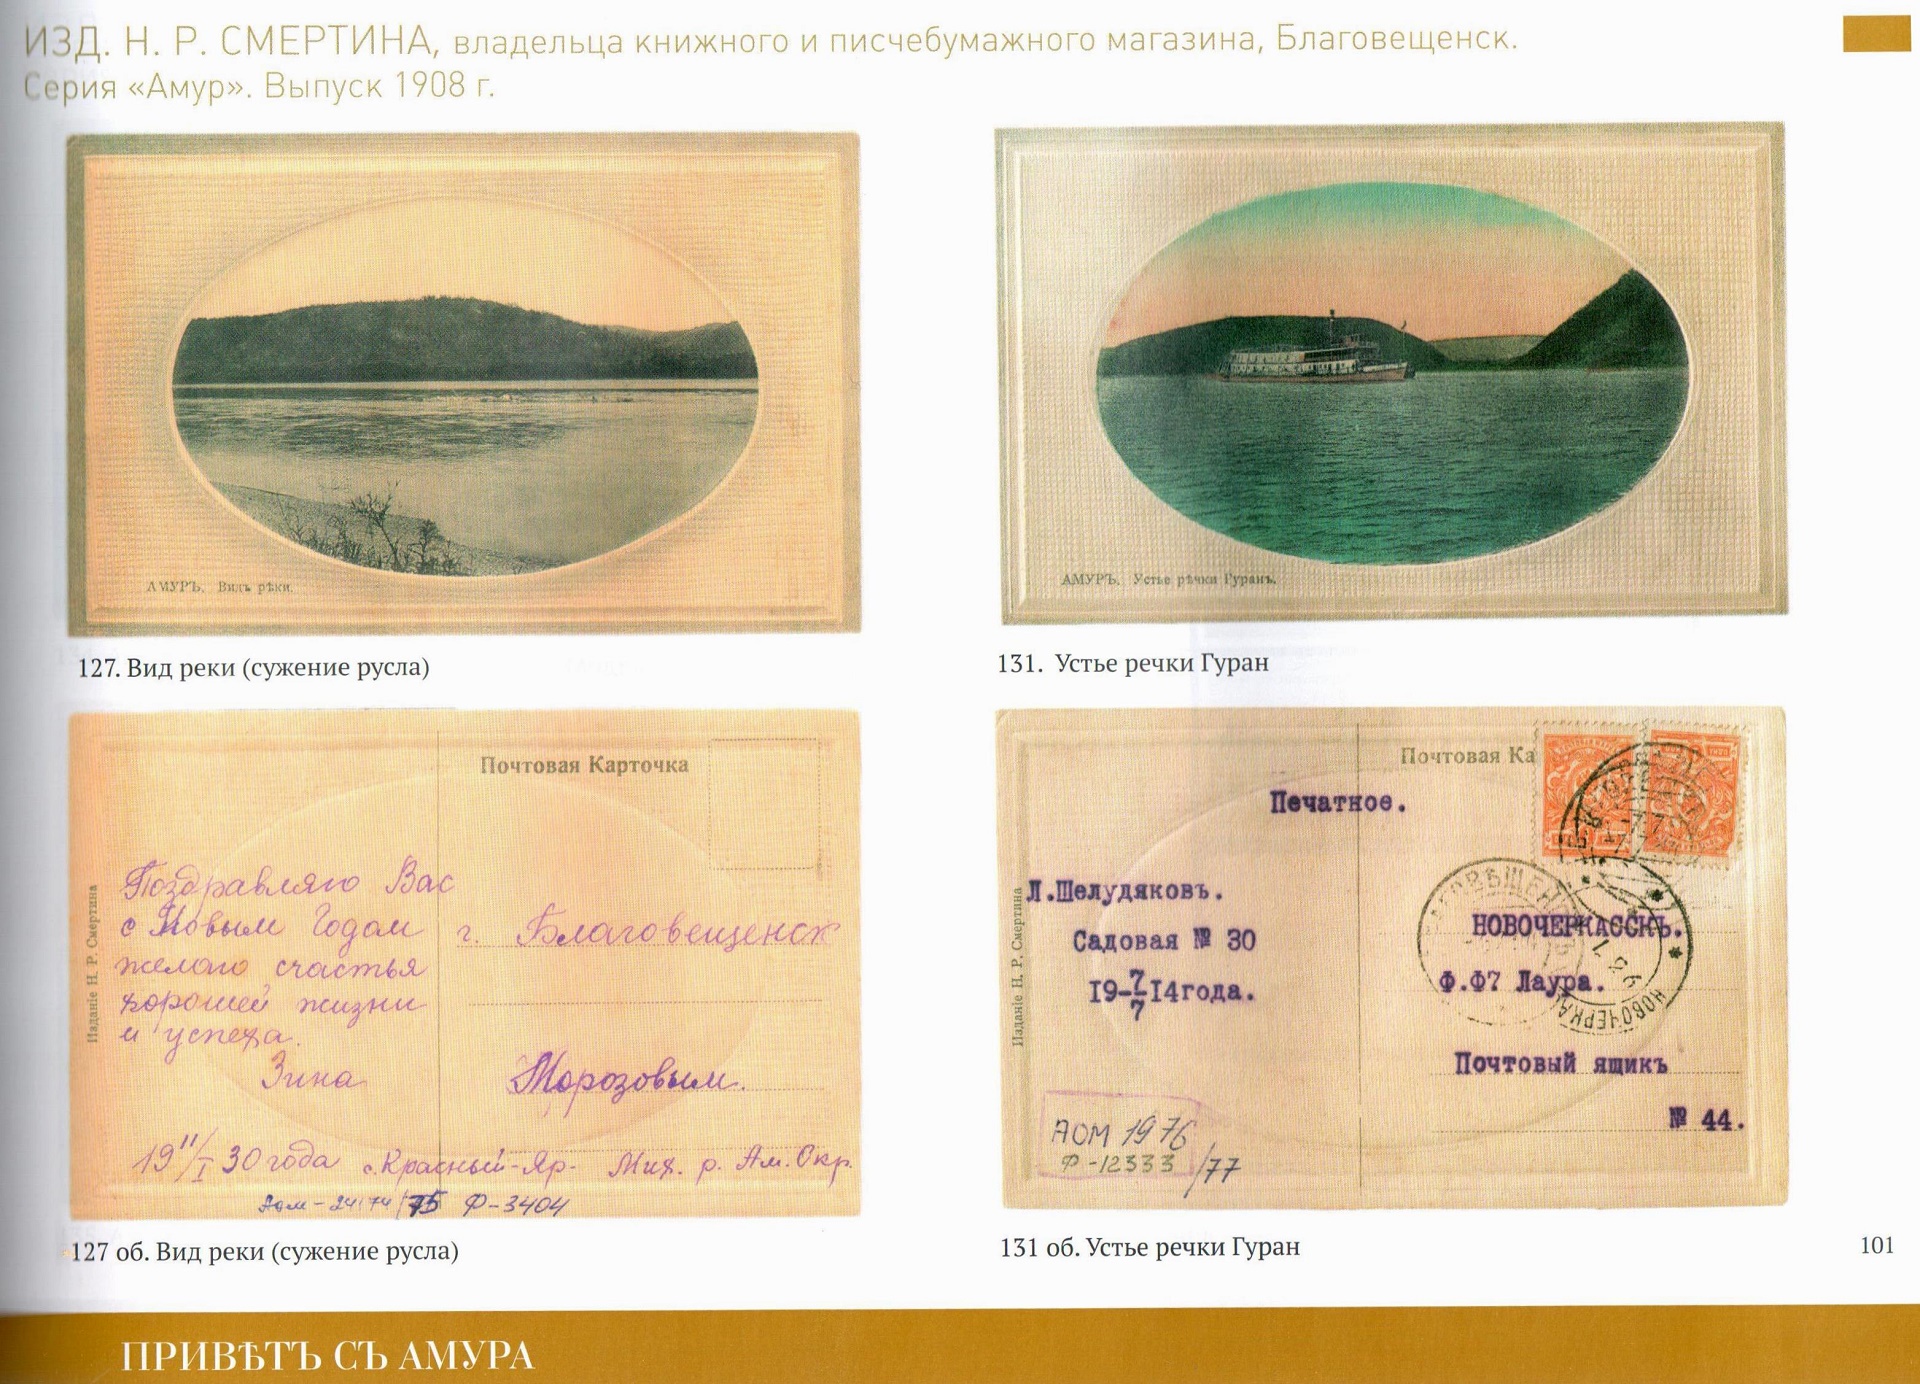 ИЗД. Н. Р. СМЕРТИНА, владельца книжного и писчебумажного магазина, Благовещенск.
Серия «Амур». Выпуск 1908 г.
АМУРЪ. Видъ рѣки.
127. Вид реки (сужение русла)
АМУРЪ. Устье рѣчки Гуранъ.
131. Устье речки Гуран
Почтовая Карточка
Изданіе Н. Р. Смертина
Поздравляю Вас
с Новым Годом
желаю счастья
хорошей жизни
и успеха.
Зина
г. Благовещенск
Морозовым.
19 11/I 30 года с. Красный-Яр. Мих. р. Ам. Окр.
Ф-3404
127 об. Вид реки (сужение русла)
Почтовая Ка
Печатное.
Изданіе Н. Р. Смертина
Л.Шелудяковъ.
Садовая № 30
19-7/7 14года.
НОВОЧЕРКАССКЪ.
Ф.Ф7 Лаура.
Почтовый ящикъ
№ 44.
НОВОЧЕРКА
АОМ 1976/77
Ф-12333
131 об. Устье речки Гуран
101
ПРИВѢТЪ СЪ АМУРА